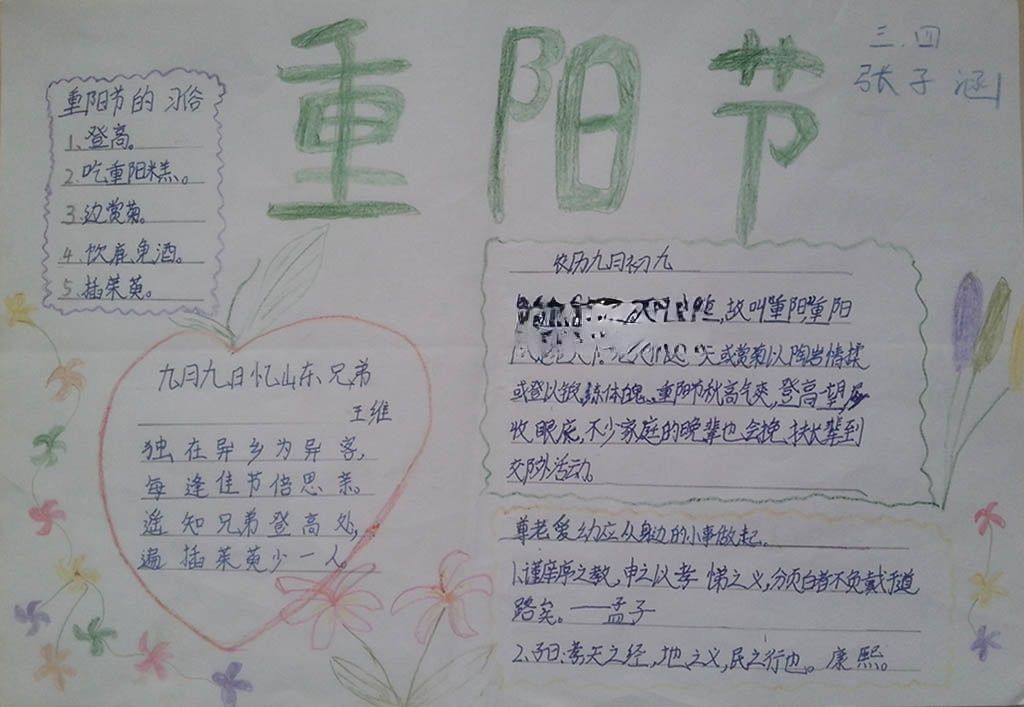 重阳节
三.四
张子涵
重阳节的习俗
1.登高。
2.吃重阳糕。
3.边赏菊。
4.饮鹿龟酒。
5.插茱萸。
九月九日忆山东兄弟
王维
独在异乡为异客,
每逢佳节倍思亲。
遥知兄弟登高处,
遍插茱萸少一人。
农历九月初九
,故叫重阳,重阳
天或赏菊以陶岩情操
或登以锻炼体魄。重阳节秋高气爽,登高望
收眼底,不少家庭的晚辈也会挽扶长辈到
交阶外活动。
尊老爱幼应从身边的小事做起.
1.谨庠序之教,申之以孝悌之义,分页白者不负戴于道
路矣。——孟子
2.子曰:孝天之经,地之义,民之行也。康熙。